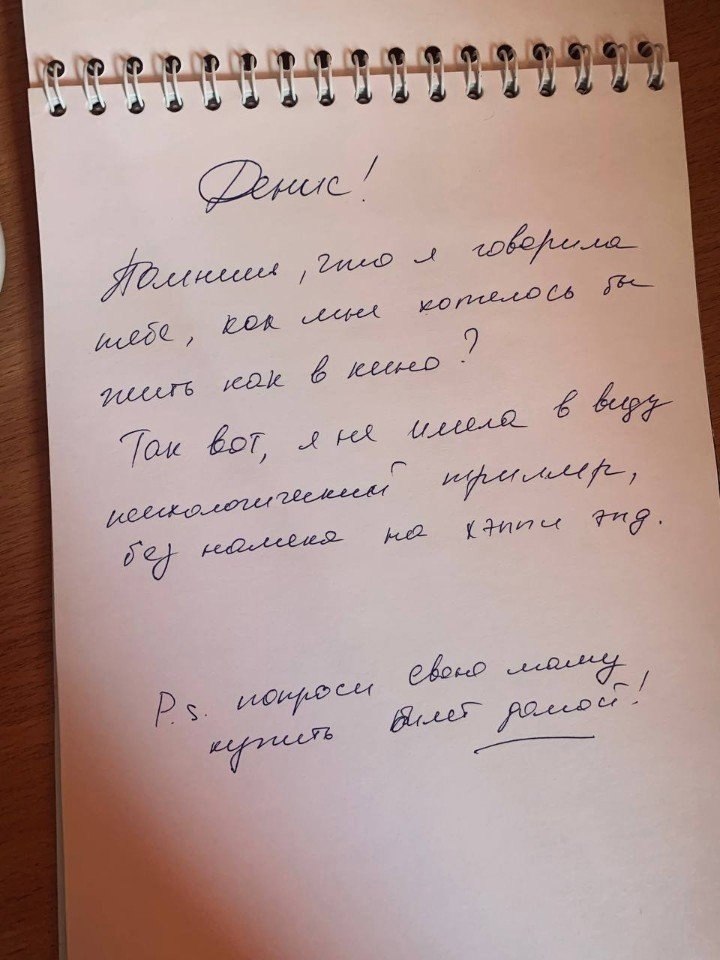 Денис!
Помниш, что я говорила
тебе, как мне хотелось бы
жить как в кино?
Так вот, я не имела в виду
психологический триллер,
без намека на хэппи энд.
P.s. попроси свою маму
купить билет домой!